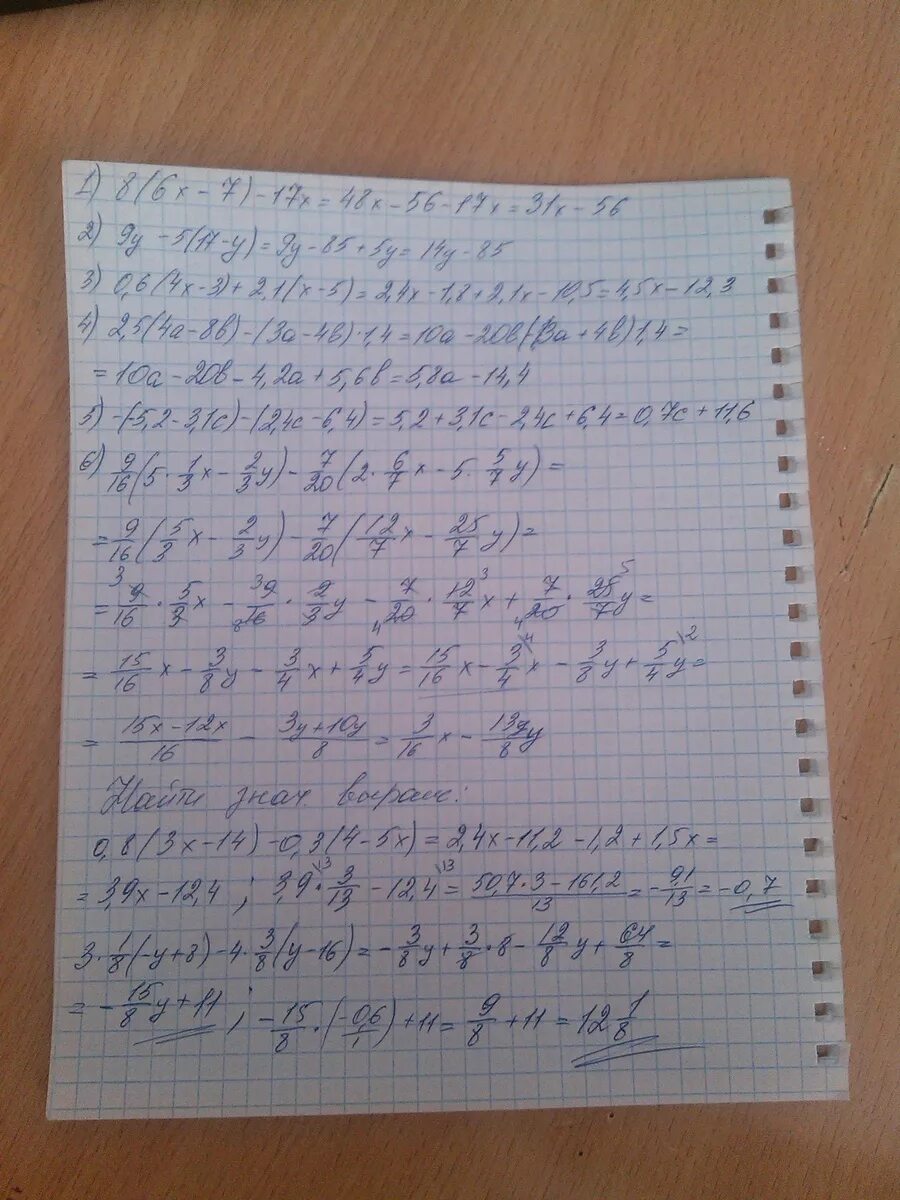 1) 8(6x - 7) - 17x = 48x - 56 - 17x = 31x - 56
2) 9y - 5(17 - y) = 9y - 85 + 5y = 14y - 85
3) 0,6(4x - 3) + 2,1(x - 5) = 2,4x - 1,8 + 2,1x - 10,5 = 4,5x - 12,3
4) 2,5(4a - 8b) - (3a - 4b) · 1,4 = 10a - 20b (-3a + 4b) 1,4 =
= 10a - 20b - 4,2a + 5,6b = 5,8a - 14,4
5) -(-5,2 - 3,1c) - (2,4c - 6,4) = 5,2 + 3,1c - 2,4c + 6,4 = 0,7c + 11,6
6) 9/16 (5 · 1/3 x - 2/3 y) - 7/20 (2 · 6/7 x - 5 · 5/7 y) =
= 9/16 (5/3 x - 2/3 y) - 7/20 (12/7 x - 25/7 y) =
= 9/16 · 5/3 x - 9/16 · 2/3 y - 7/20 · 12/7 x + 7/20 · 25/7 y =
= 15/16 x - 3/8 y - 3/4 x + 5/4 y = 15/16 x - 3/4 x - 3/8 y + 5/4 y =
= (15x - 12x)/16 - (3y + 10y)/8 = 3/16 x - 13/8 y
Найти знач выраж:
0,8(3x - 14) - 0,3(4 - 5x) = 2,4x - 11,2 - 1,2 + 1,5x =
= 3,9x - 12,4 ; 3,9 · 3/13 - 12,4 = (50,7 · 3 - 161,2)/13 = -9,1/13 = -0,7
3 · 1/8 (-y + 8) - 4 · 3/8 (y - 16) = -3/8 y + 3/8 · 8 - 12/8 y + 64/8 =
= -15/8 y + 11 ; -15/8 · (-0,6/1) + 11 = 9/8 + 11 = 12 1/8